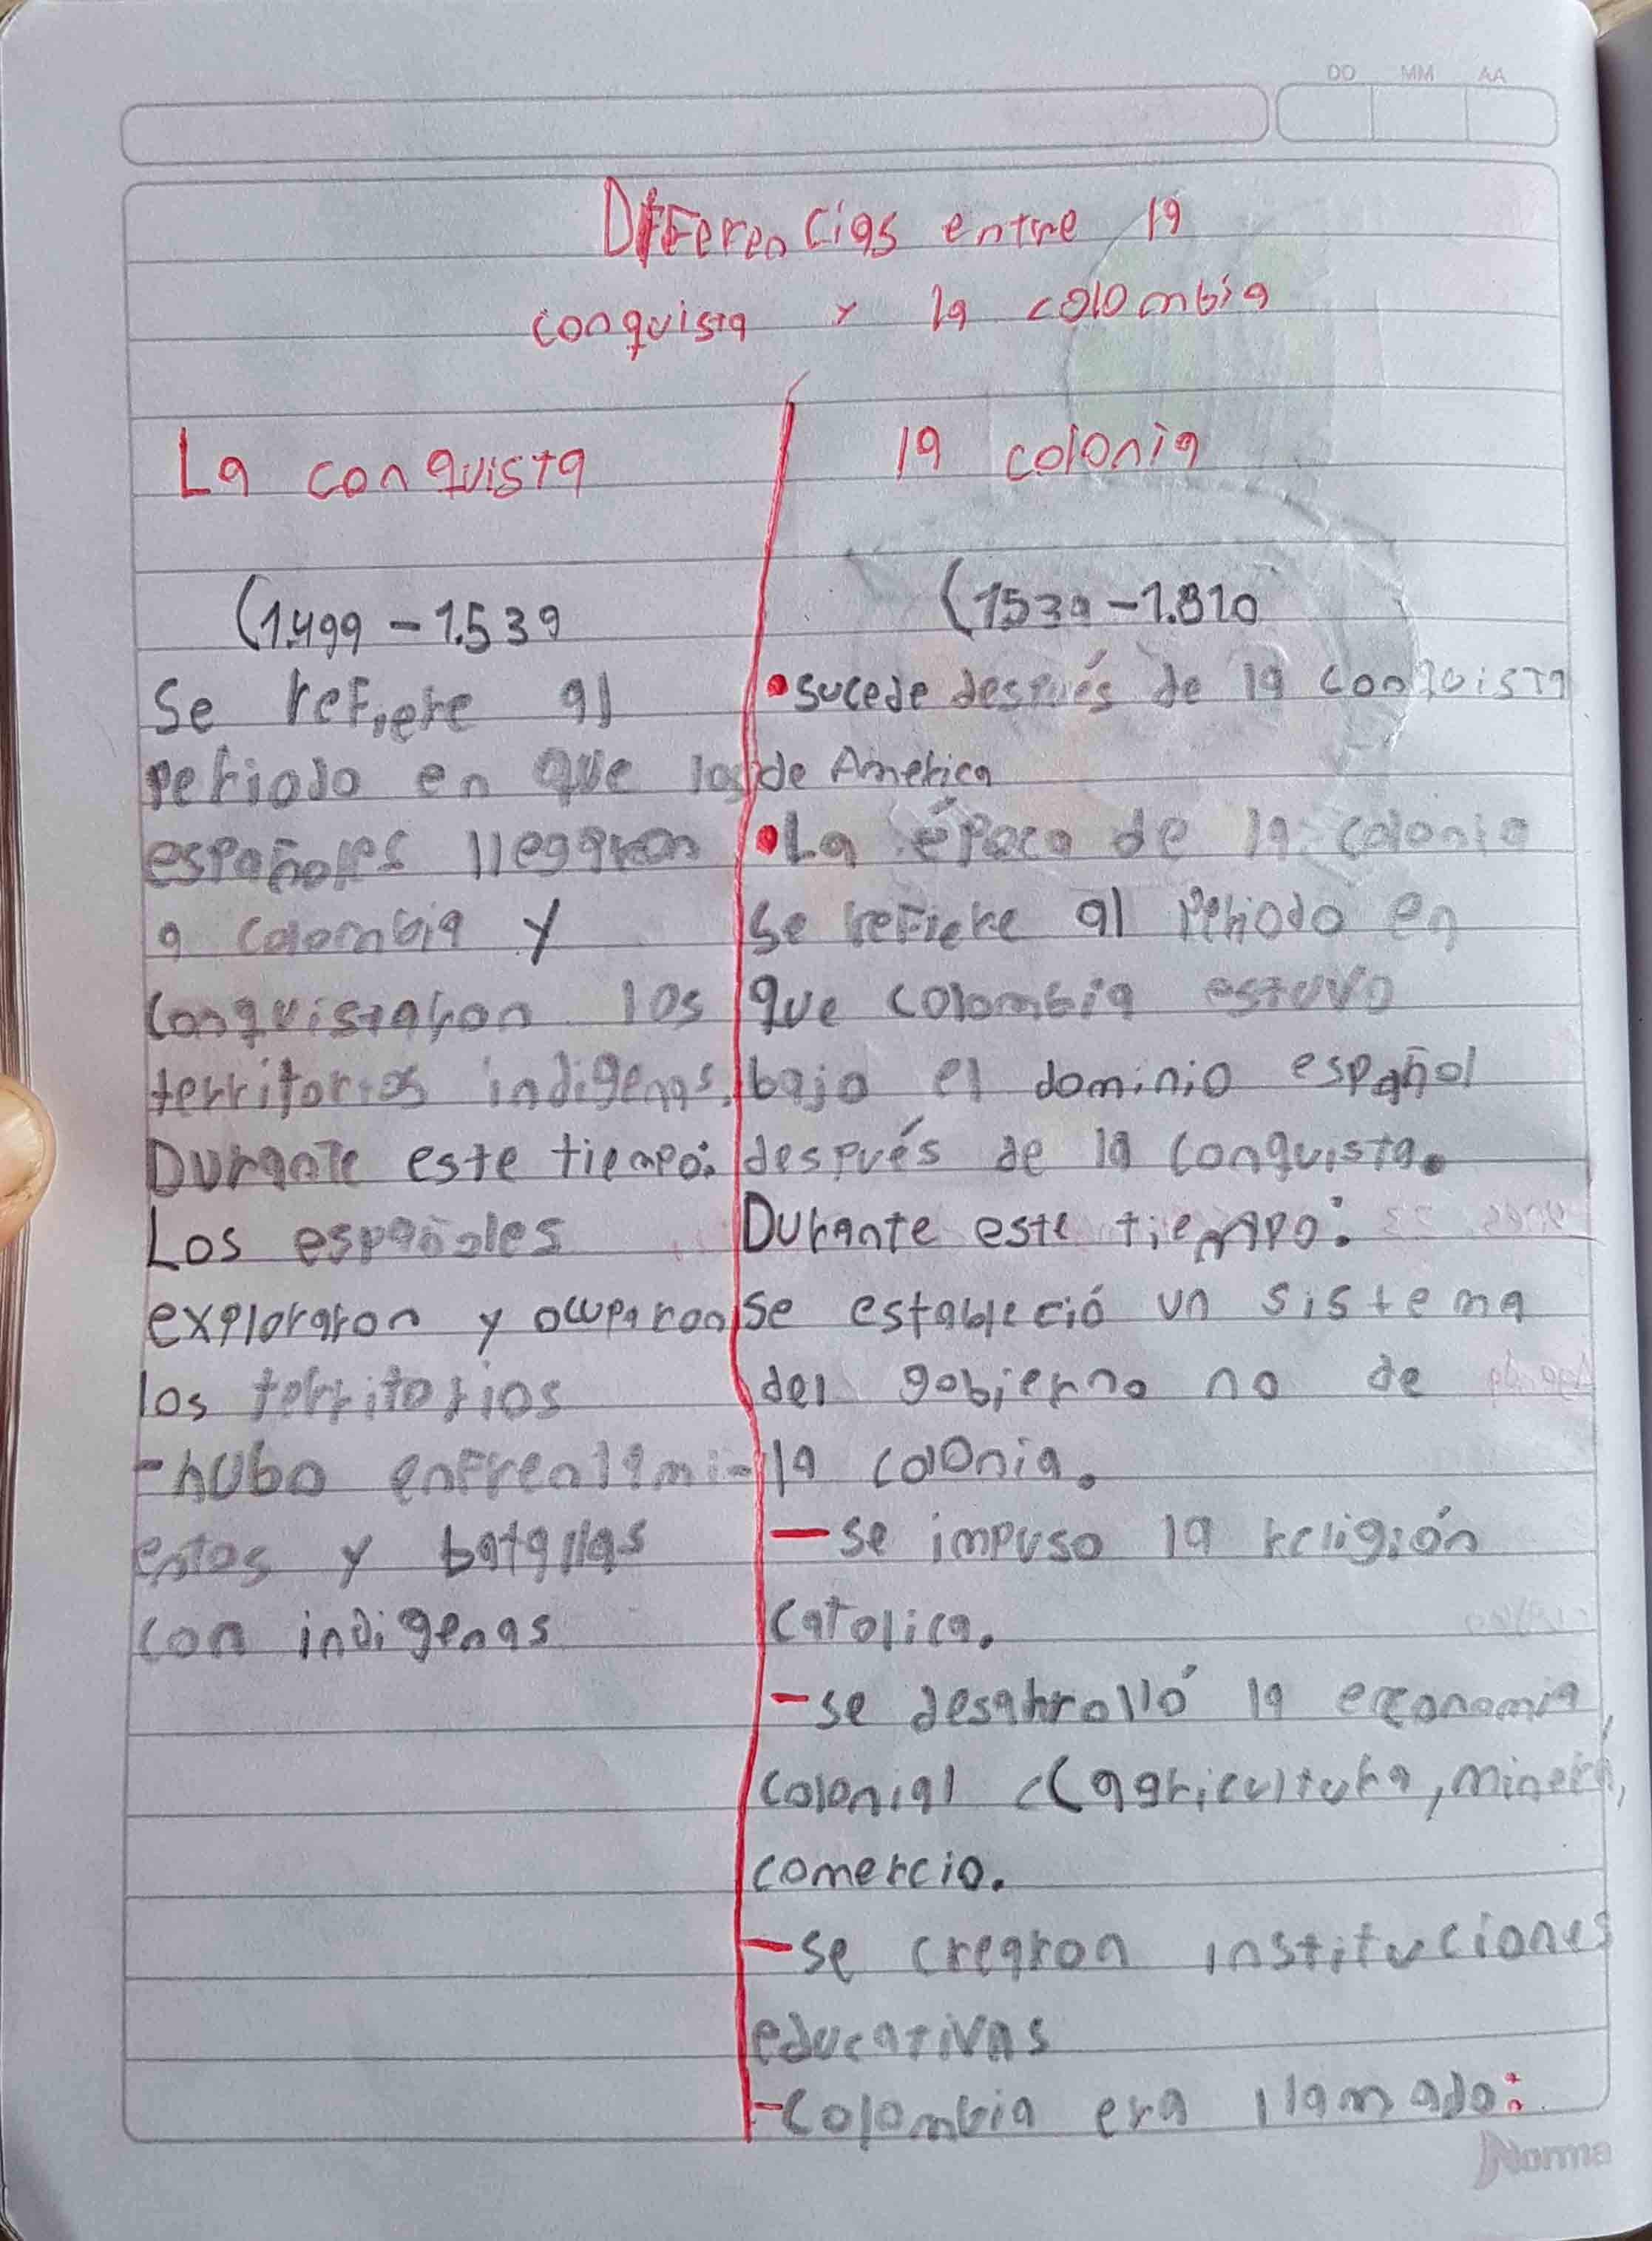 DD MM AA
Diferencias entre la
conquista y la colombia
La conquista
(1.499 - 1.539
Se refiere al
periodo en que los
españoles llegaron
a colombia y
conquistaron los
territorios indigenas.
Durante este tiempo:
Los españoles
exploraron y ocuparon
los territorios
- hubo enfrentami-
entos y batallas
con indigenas
la colonia
(1539 - 1.810
• sucede después de la conquista
de America
• La época de la colonia
se refiere al periodo en
que colombia estuvo
bajo el dominio español
después de la conquista.
Durante este tiempo:
se estableció un sistema
del gobierno no de
la colonia.
- se impuso la religión
catolica.
- se desahrolló la economia
colonial ((agricultura, mineria,
comercio.
- se crearon instituciones
educativas
- Colombia era llamado:
Norma